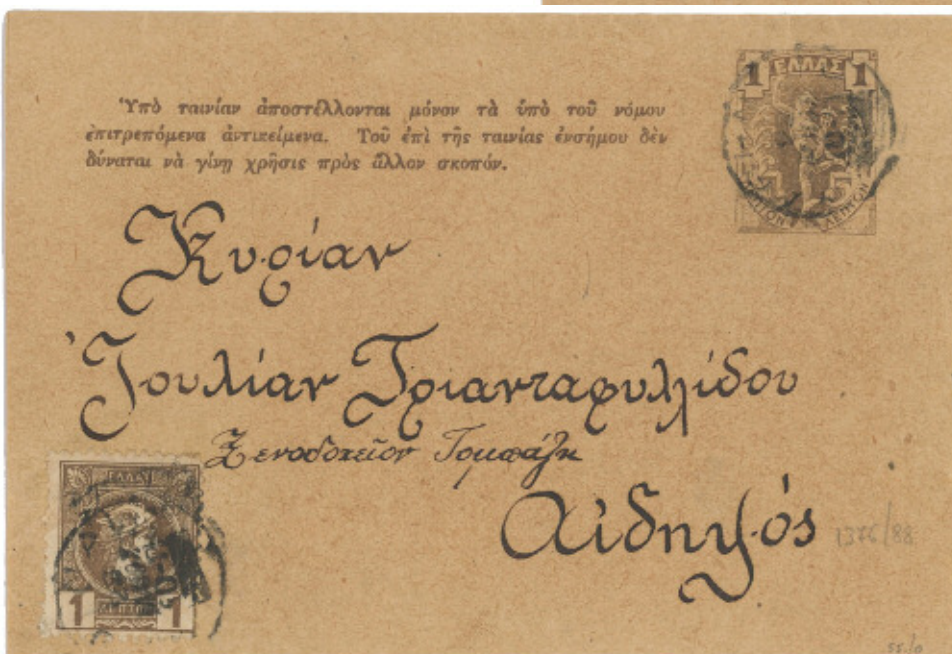 1 ΕΛΛΑΣ 1
Ὑπὸ ταινίαν ἀποστέλλονται μόνον τὰ ὑπὸ τοῦ νόμου
ἐπιτρεπόμενα ἀντικείμενα. Τοῦ ἐπὶ τῆς ταινίας ἐνσήμου δὲν
δύναται νὰ γίνῃ χρῆσις πρὸς ἄλλον σκοπόν.
ΛΕΠΤΟΝ ΛΕΠΤΟΝ
Κυρίαν
Ἰουλίαν Τριανταφυλλίδου
Ξενοδοχεῖον Τομπάζη
Αἰδηψός
1376/88
ΕΛΛΑΣ
1 ΛΕΠΤΟΝ 1